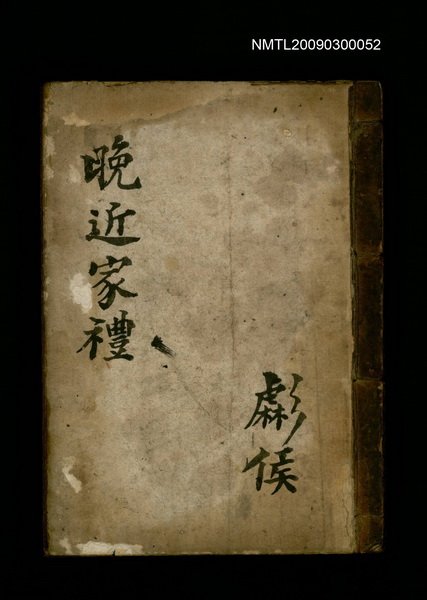 NMTL20090300052
晚近家禮
侯